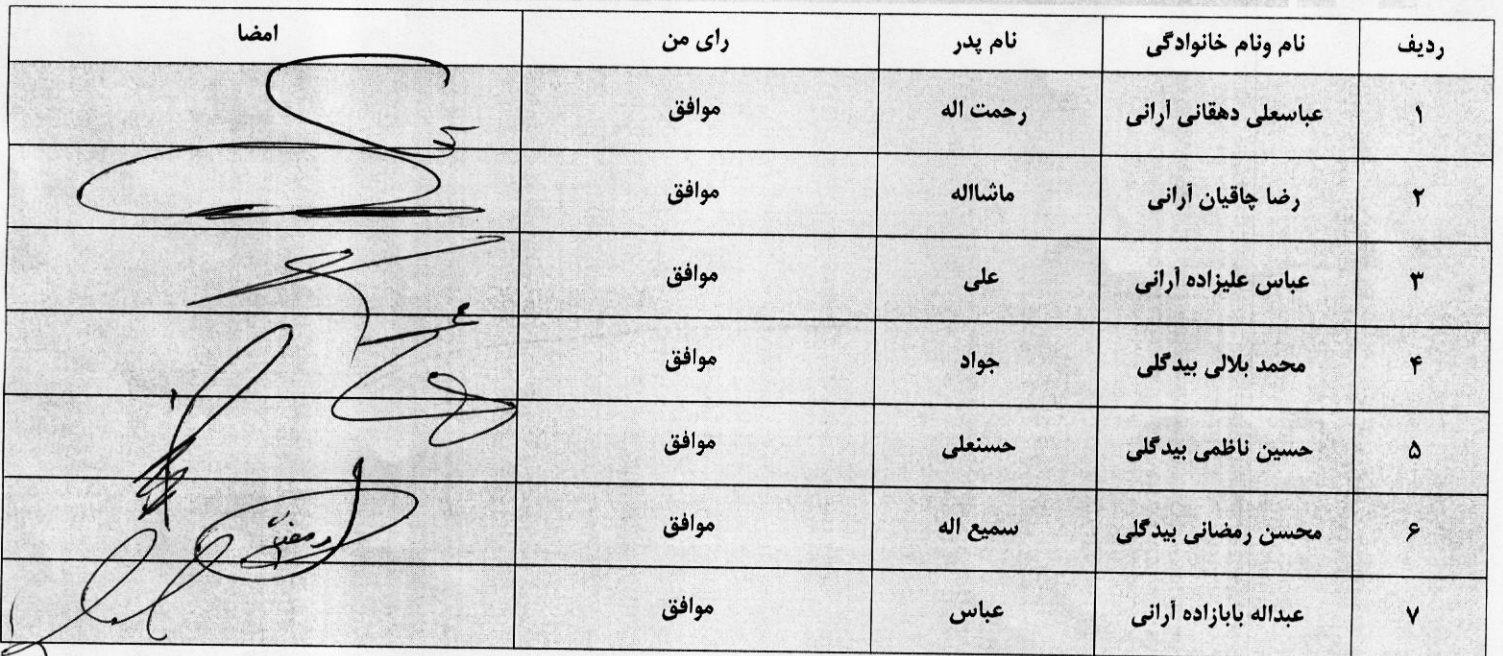 ردیف نام ونام خانوادگی نام پدر رای من امضا
۱ عباسعلی دهقانی آرانی رحمت اله موافق
۲ رضا چاقیان آرانی ماشااله موافق
۳ عباس علیزاده آرانی علی موافق
۴ محمد بلالی بیدگلی جواد موافق
۵ حسین ناظمی بیدگلی حسنعلی موافق
۶ محسن رمضانی بیدگلی سمیع اله موافق
۷ عبداله بابازاده آرانی عباس موافق